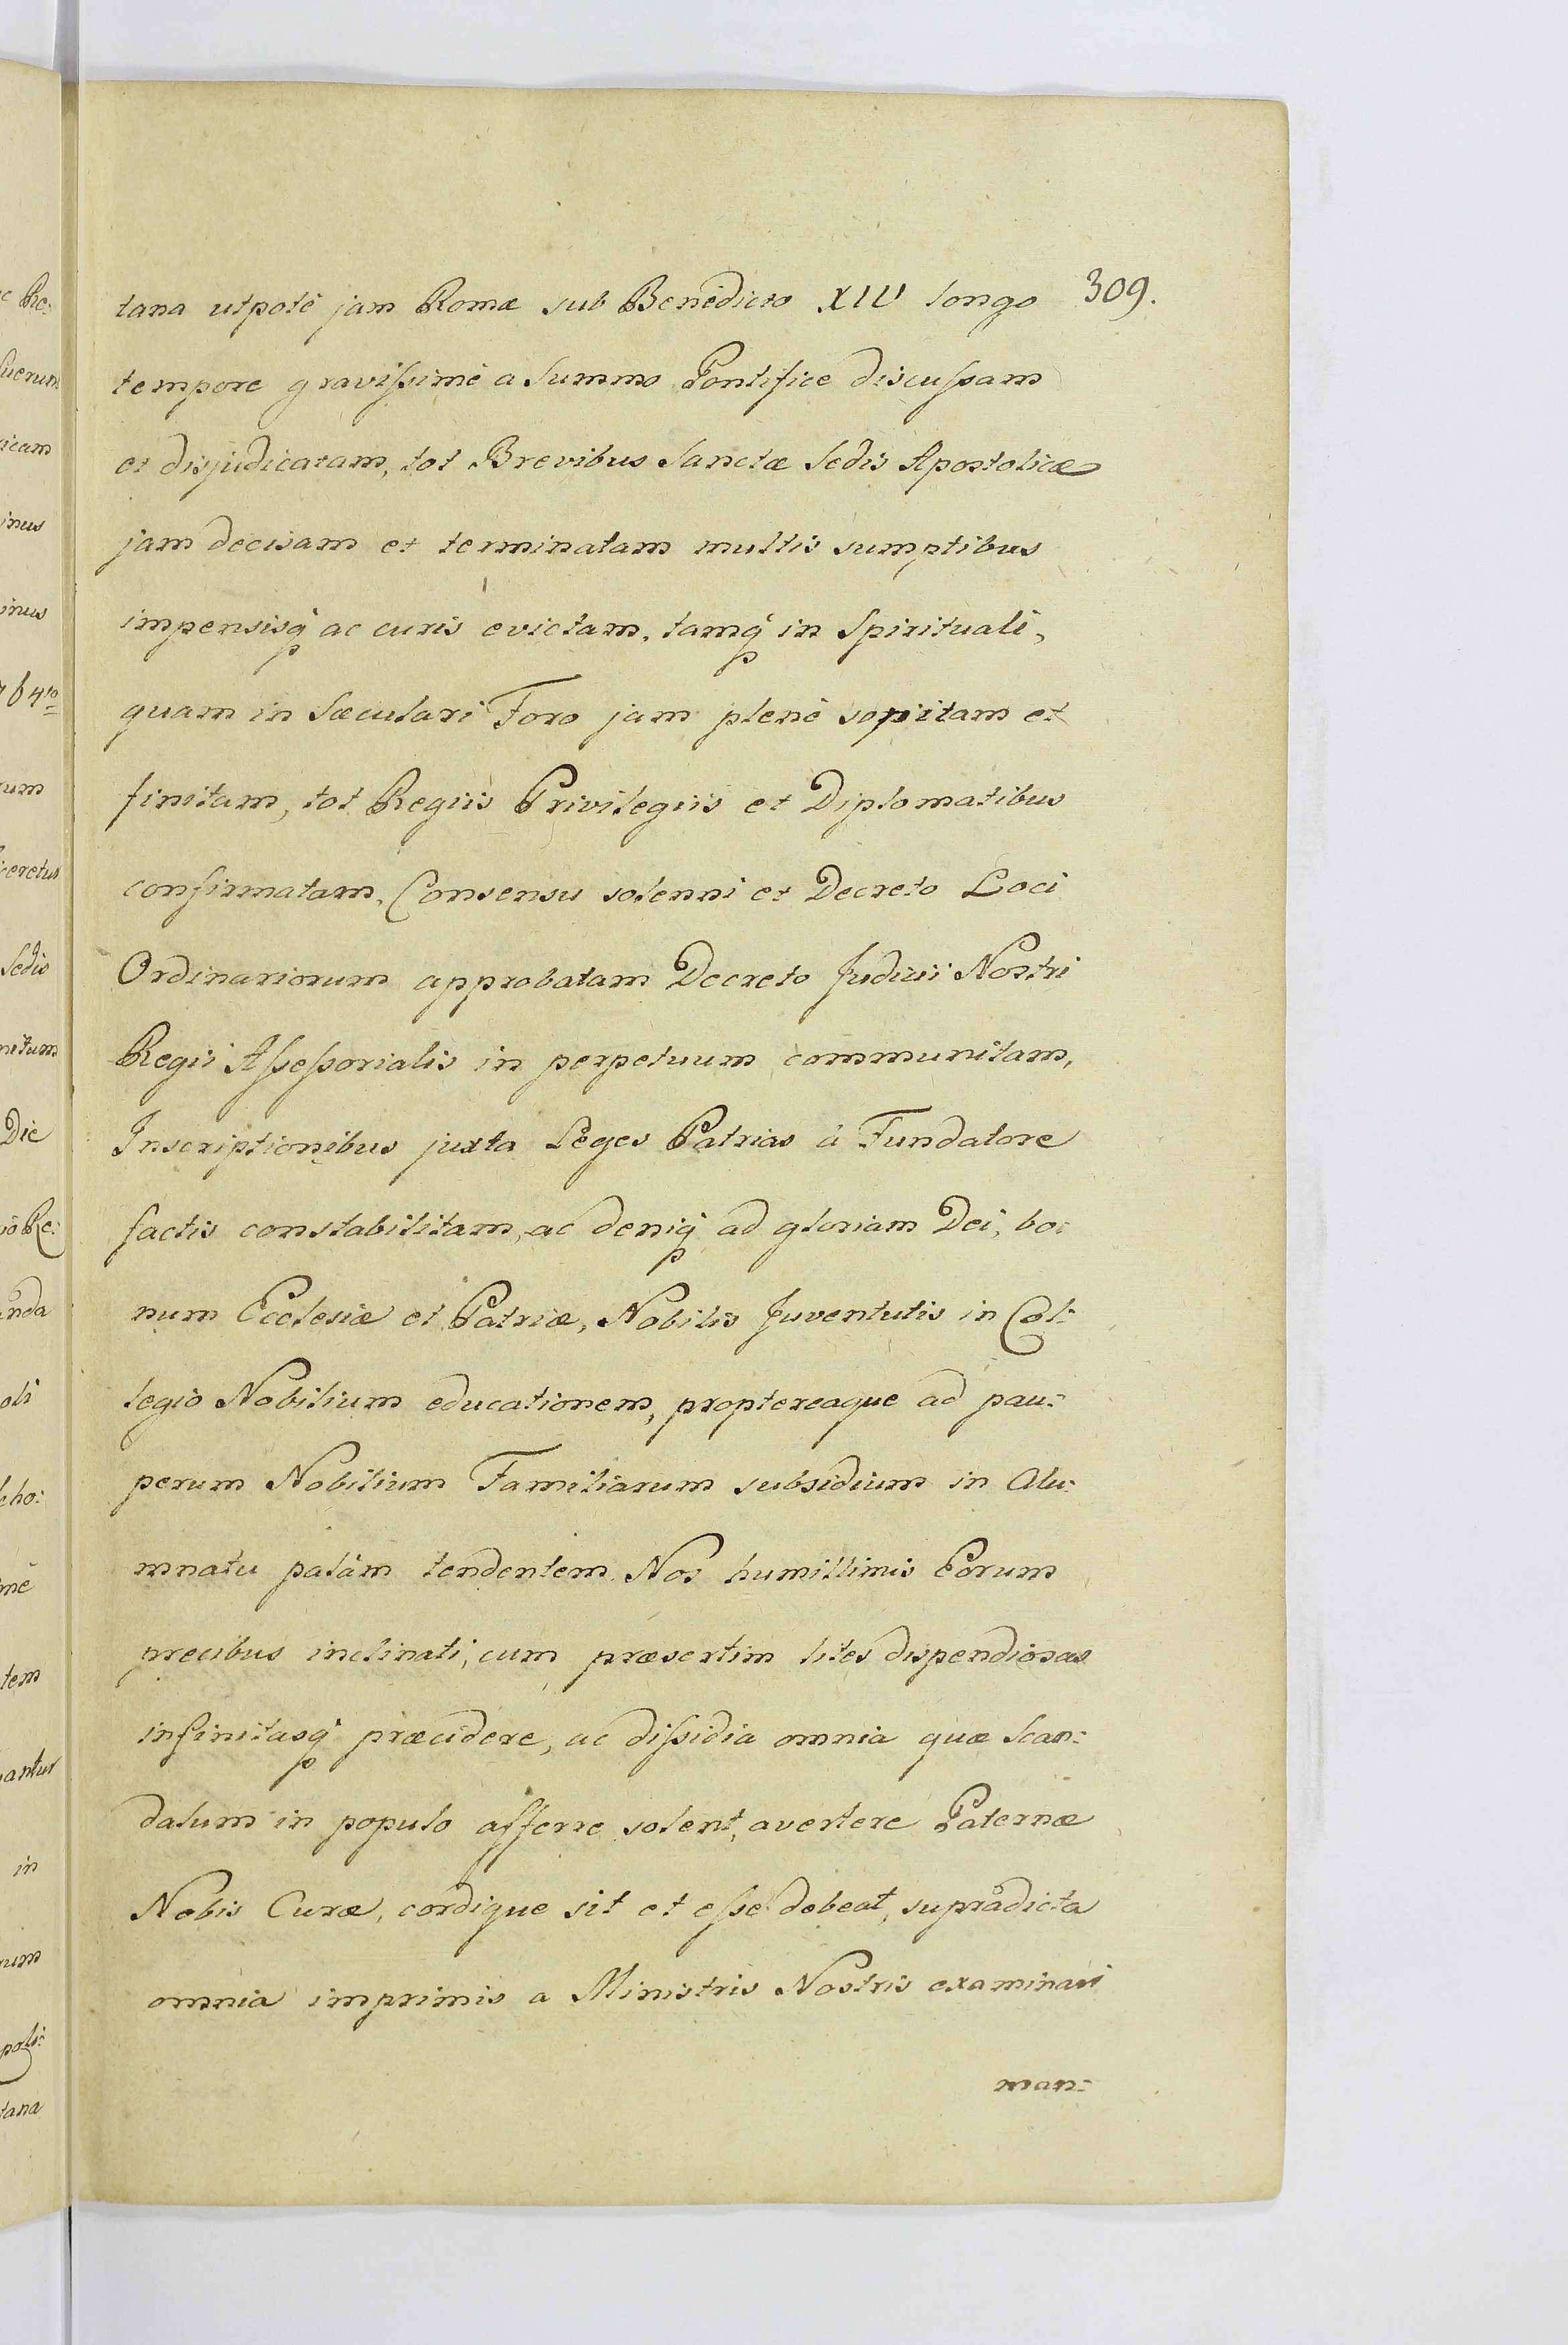 309.
tana utpotè jam Romæ sub Benedicto XIV longo
tempore gravißimè a Summo Pontifice discußam
et disjudicatam, tot Brevibus Sanctæ Sedis Apostolicæ
jam decisam et terminatam multis sumptibus
impensisq́ ac curis evictam, tamq́ in Spirituali,
quam in Sæculari Foro jam plenè sopitam et
finitam, tot Regiis Privilegiis et Diplomatibus
confirmatam, Consensu solenni et Decreto Loci
Ordinariorum approbatam Decreto Judicii Nostri
Regii Aßeßorialis in perpetuum communitam,
Inscriptionibus juxta Leges Patrias à Fundatore
factis constabilitam, ac deniq́ ad gloriam Dei, bo:
num Ecclesiæ et Patriæ, Nobilis Juventutis in Col:
legiò Nobilium educationem, proptereaque ad pau:
perum Nobilium Familiarum subsidium in Alu:
mnatu palàm tendentem. Nos humillimis Eorum
precibus inclinati, cum præsertim lites dispendiosas
infinitasq́ præcidere, ac dißidia omnia quæ Scan:
dalum in populo afferre solent, avertere Paternæ
Nobis Curæ, cordique sit et eße debeat, supradicta
omnia imprimis a Ministris Nostris examinari
man:
Re:
ricam
inus
764to
um
Sedis
Die
Re:
oli
mè
tem
antur
in
poli:
tana